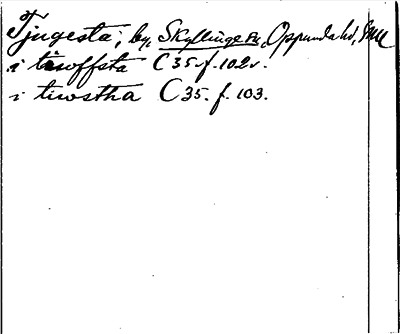 Tjugesta, by, Skyllinge sn, Oppunda hd, Sml
i tiwoffsta C 35 f. 102v.
i tiwstha C 35. f. 103.